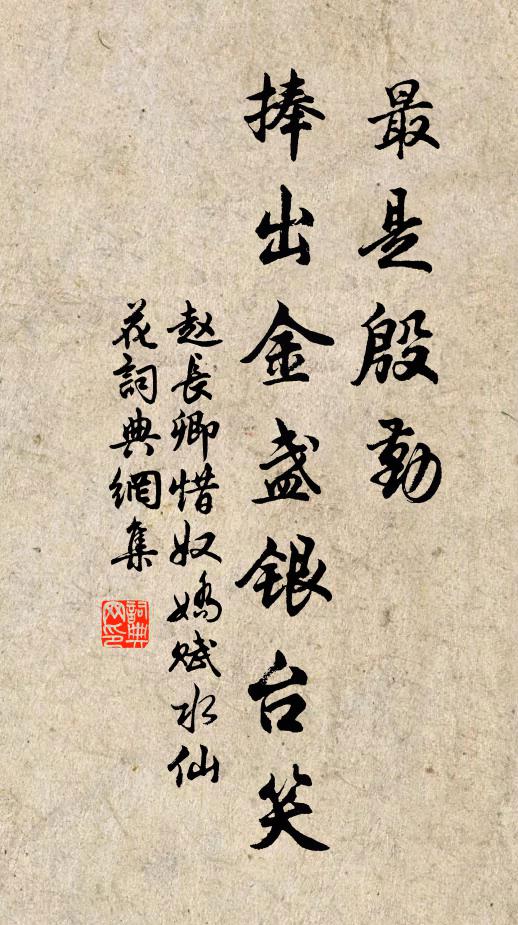 最是殷勤
捧出金盏银台笑
赵長卿惜奴嬌賦水仙
花詞典網集
詞典
网印